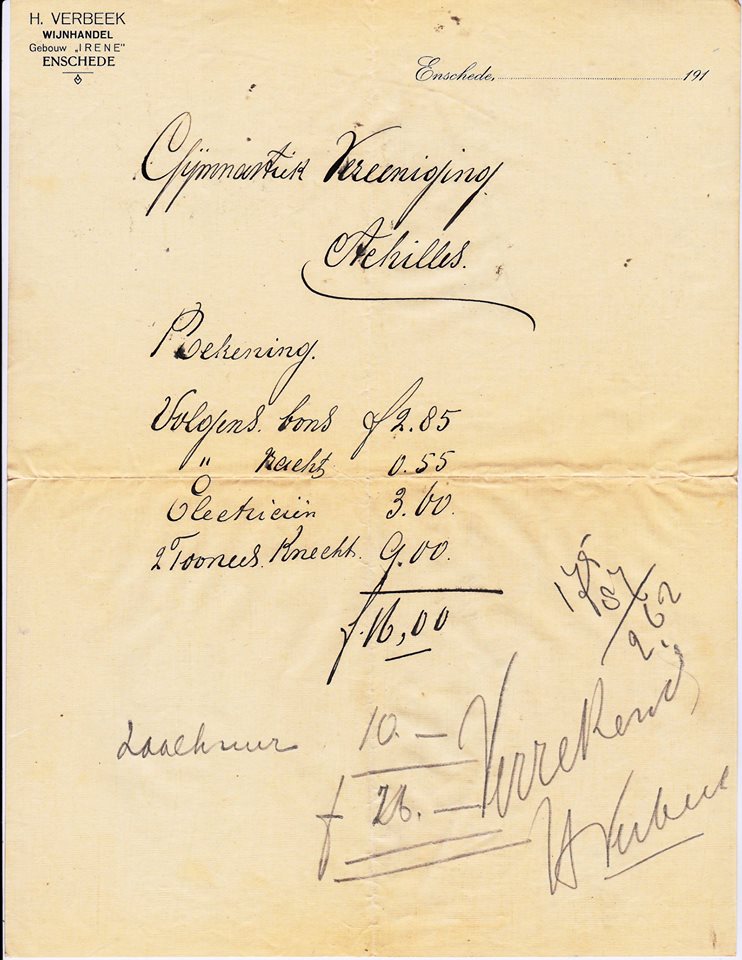 H. VERBEEK
WIJNHANDEL
Gebouw „IRENE”
ENSCHEDE
Enschede, 191
Gymnastiek Vereeniging
Achilles.
Rekening.
Volgens bons f 2.85
„ 0.55
Electriciën 3.60.
2 Tooneel. Knecht. 9.00.
f. 16,00
175
87
262
Zaalhuur 10.—
f 26.— Verrekend
H Verbeek